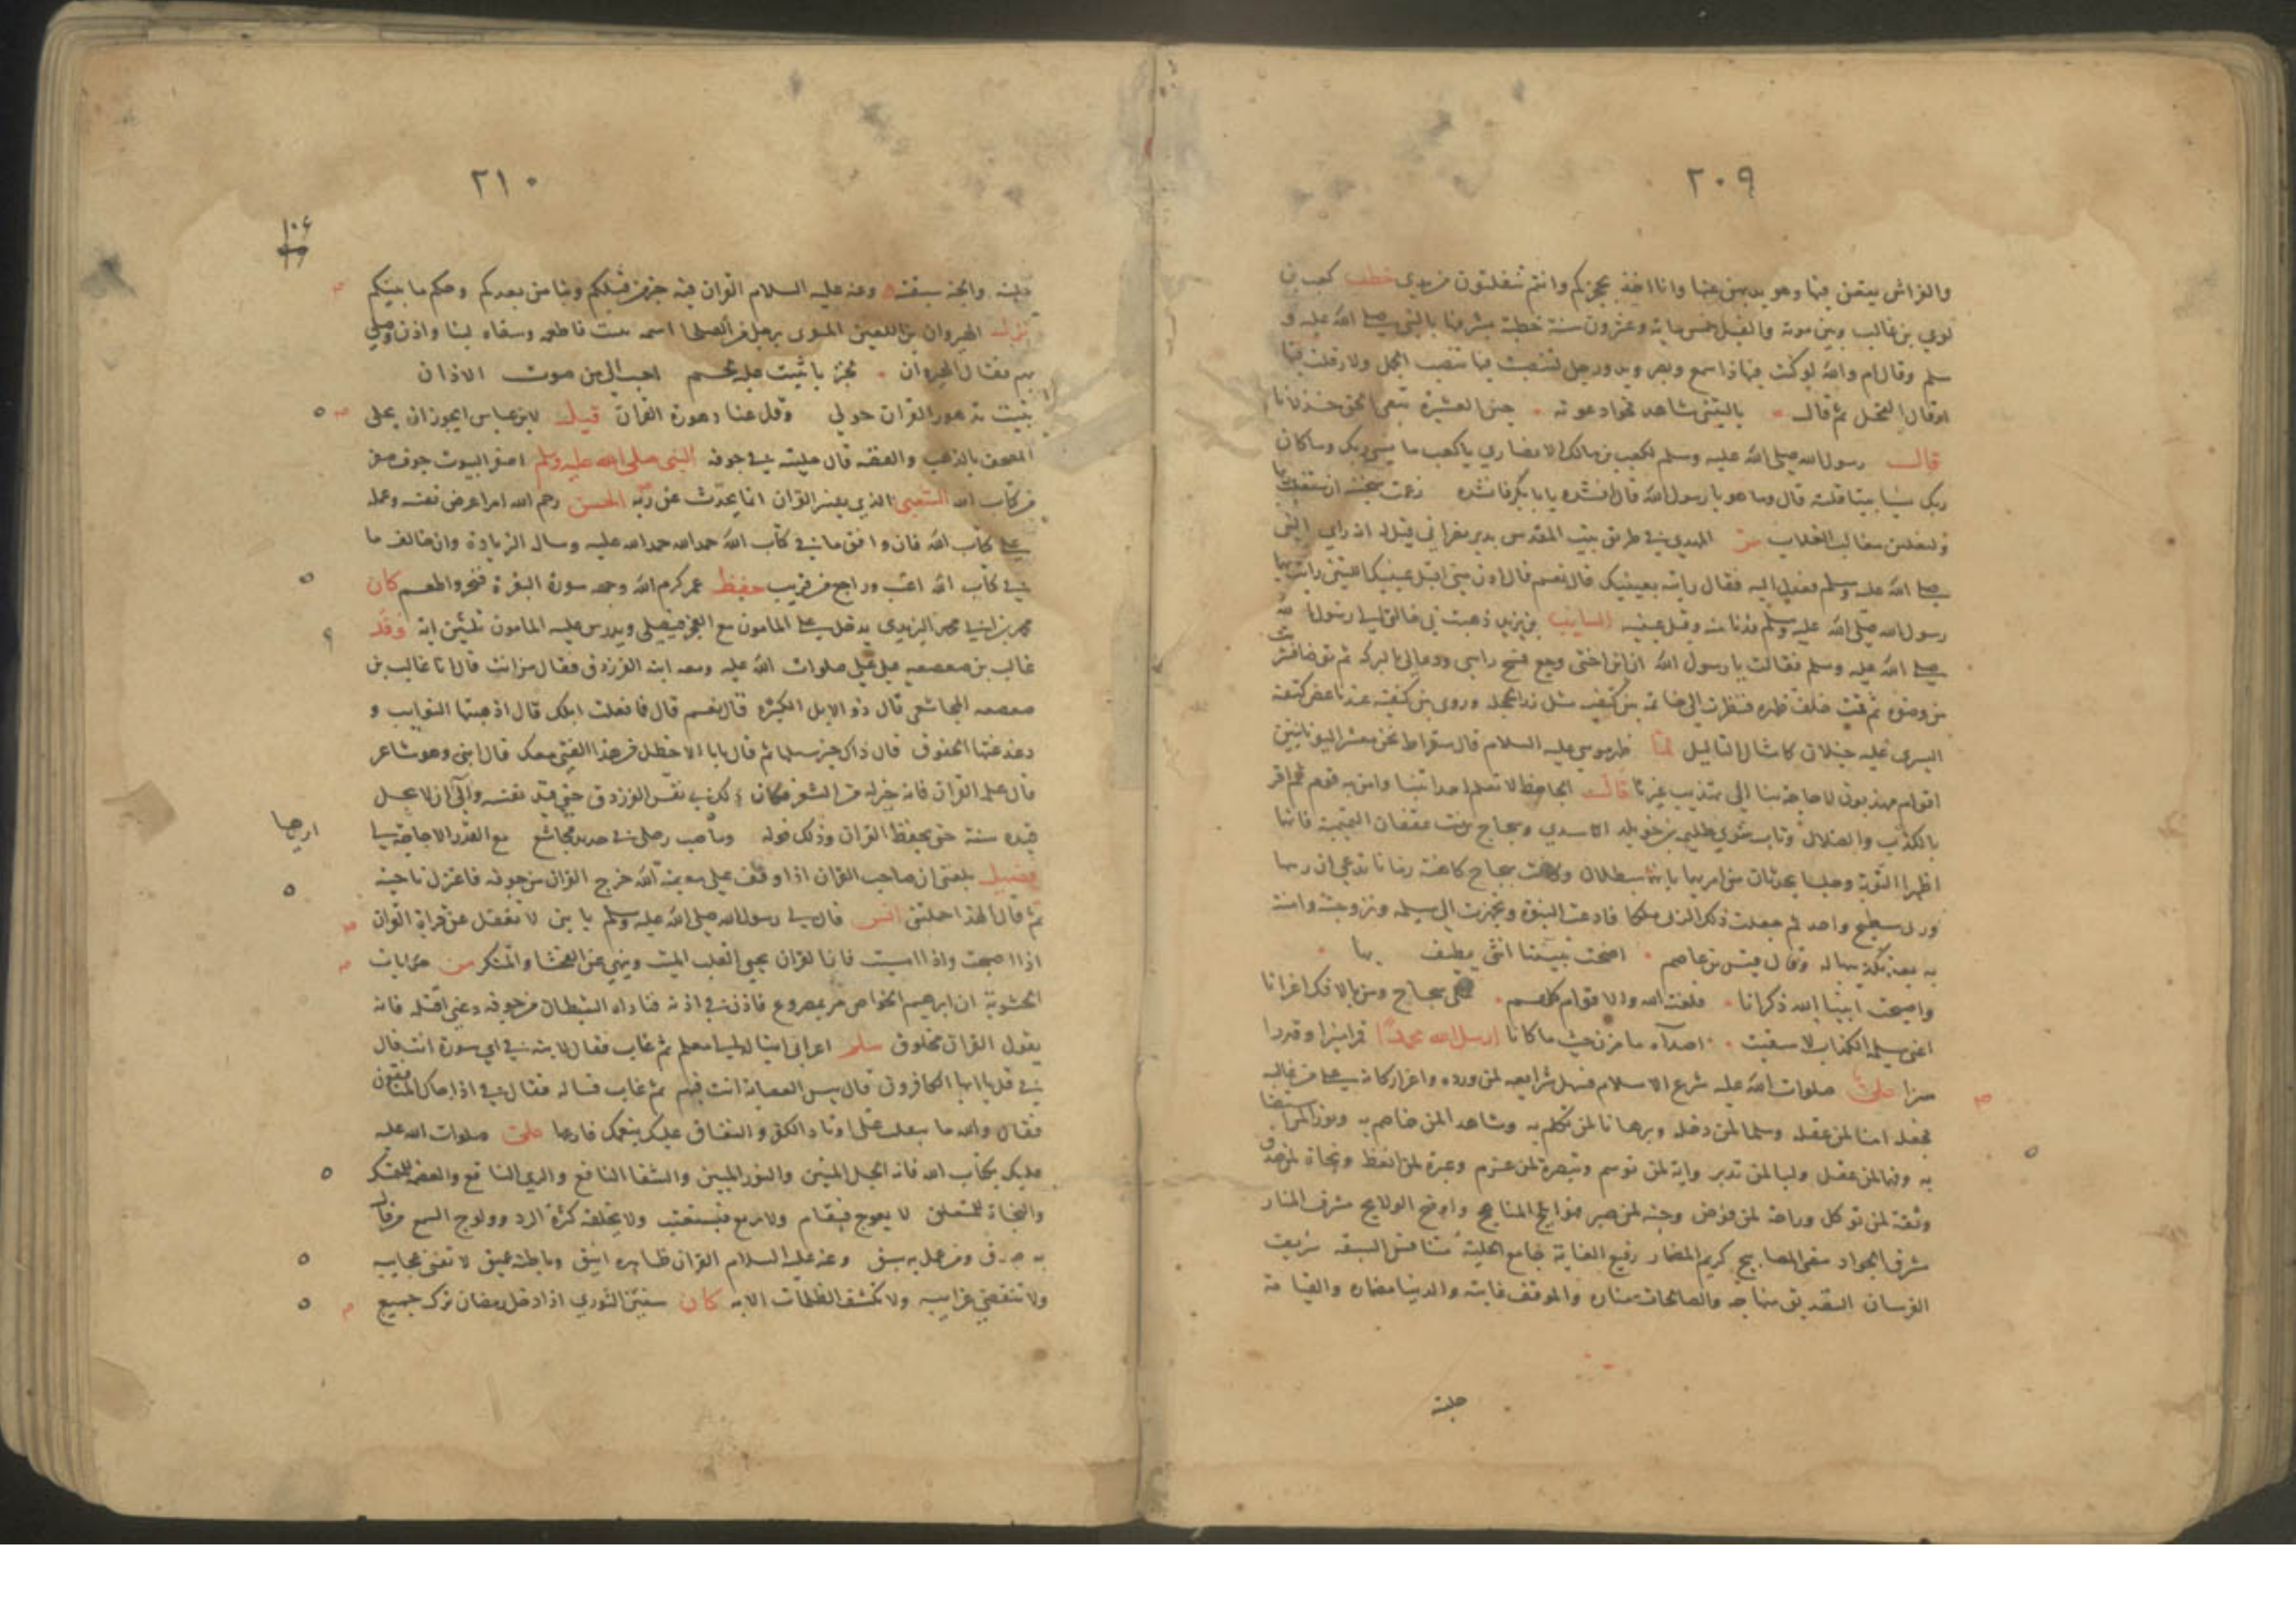 ٢٠٩
والفراش يقعن فيها وهو يذبهن عنها وانا اخذ بحجزكم وانتم تفلتون من يدي خطب كعب بن
لوي بن غالب وبين موته والفيل خمس ماية وعشرون سنة خطبة بشر فيها بالنبي صلى الله عليه و
سلم وقال ام والله لو كنت فيها ذا سمع وبصر ويد ورجل لتنصبت فيها تنصب الجمل ولارقلت فيها
ارقال الفحل ثم قال يا ليتني شاهد نجوا دعوته حين العشيرة تبغي الحق خذلانا
قال رسول الله صلى الله عليه وسلم لكعب بن مالك الانصاري يا كعب ما نسي ربك وما كان
ربك نسيا بيتا قلته قال وما هو يا رسول الله قال انشده يا ابا بكر فانشده زعمت سخينة ان ستغلب ربها
وليغلبن مغالب الغلاب مر المهدي في طريق بيت المقدس بدير نصراني قيل له انه راي النبي
صلى الله عليه وسلم فعدل اليه فقال رايته بعينيك قال نعم قال ادن مني اقبل عينيك اللتين رايت بهما
رسول الله صلى الله عليه وسلم فدنا منه وقبل عينيه السايب بن يزيد ذهبت بي خالتي الى رسول الله
صلى الله عليه وسلم فقالت يا رسول الله ان ابن اختي وجع فمسح راسي ودعا لي بالبركة ثم توضا فشربت
من وضوه ثم قمت خلف ظهره فنظرت الى خاتمه بين كتفيه مثل زر الحجلة وروي بين كتفيه عند ناغض كتفه
اليسرى عليه خيلان كامثال الثاليل لما ظهر موسى عليه السلام قال سقراط نحن معشر اليونانيين
اقوام مهذبون لا حاجة بنا الى تهذيب غيرنا قال الجاحظ لا نعلم احدا تنبا وامن به قوم ثم اقر
بالكذب والضلال وتاب سوي طليحة بن خويلد الاسدي وسجاح بنت عقفان التميمية فانهما
اظهرا التوبة وجلسا يحدثان من امرهما بانه شيطان وكانت سجاح كاهنة زمانا تدعي ان ربها
ورب سطيح واحد ثم جعلت ذلك الزي ملكا فادعت النبوة وتجهزت الى مسيلمه وتزوجته وامنت
به بعد تكذيبها له وقال قيس بن عاصم اضحت نبيتنا انثى يطيف بها
واصبحت انبيا الله ذكرانا فلعنة الله والاقوام كلهم على سجاح ومن بالافك اغرانا
اعني مسيلمة الكذاب لا سقيت اصداه ما مزن حيث ما كانا ارسل الله محمدا قمرا منيرا وقدرا
مبرا علي صلوات الله عليه شرع الاسلام فسهل شرايعه لمن ورده واعز اركانه على من غالبه
فجعله امنا لمن عقله وسلما لمن دخله وبرهانا لمن تكلم به وشاهدا لمن خاصم به ونورا لمن استضا
به وفهما لمن عقل ولبا لمن تدبر واية لمن توسم وتبصرة لمن عزم وعبرة لمن اتعظ ونجاة لمن صدق
وثقة لمن توكل وراحة لمن فوض وجنة لمن صبر فهو ابلج المناهج واوضح الولايج مشرف المنار
مشرق الجواد مضي المصابيح كريم المضمار رفيع الغاية جامع الحلبة متنافس السبقة شريف
الفرسان التصديق منهاجه والصالحات مناره والموت غايته والدنيا مضماره والقيامة
حلبته
٢١٠
١٠٦
حلبته والجنة سبقته وعنه عليه السلام القران فيه خبر من قبلكم ونبا من بعدكم وحكم ما بينكم
نزل المهروان اللعين برجل من الصلحا اسمه وسقاه لبنا واذن وصلى
بهم فقال المهروان خبز يا شيت عليه لحم احب الي من صوت الاذان
تبيت تدهور القران حولي وقل عنا دهورة القران قيل لابن عباس ايجوز ان يحلى
المصحف بالذهب والفضه قال حليته في جوفه النبي صلى الله عليه وسلم اصفر البيوت جوف صفر
من كتاب الله الشعبي الذي يفسر القران انما يحدث عن ربه الحسن رحم الله امرا عرض نفسه وعمله
على كتاب الله فان وافق ما في كتاب الله حمد الله وساله الزيادة وان خالف ما
في كتاب الله اعتب وراجع من قريب حفظ عمر كرم الله وجهه سورة البقرة فنحر واطعم كان
محمد بن ابي محمد اليزيدي يدخل على المامون مع الفجر فيصلي ويدرس عليه المامون ثلثين اية وفد
غالب بن صعصعه على علي صلوات الله عليه ومعه ابنه الفرزدق فقال من انت قال انا غالب بن
صعصعه المجاشعي قال ذو الابل الكثيرة قال نعم قال فما فعلت ابلك قال اذهبتها النوايب و
ذعذعتها الحقوق قال ذاك خير سبلها ثم قال يا ابا الاخطل من هذا الفتى معك قال ابني وهو شاعر
قال علمه القران فانه خير له من الشعر فكان ذلك في نفس الفرزدق حتى قيد نفسه والى ان لا يحل
قيده سنة حتى يحفظ القران وذلك قوله وما صب رجلي في حديد مجاشع مع القدر الا حاجة لي
اريدها
فضيل بلغني ان صاحب القران اذا وقف على معصية الله خرج القران من جوفه فاعتزل ناحية
ثم قال الهذا حملتني انس قال لي رسول الله صلى الله عليه وسلم يا بني لا تغفل عن قراة القران
اذا اصبحت واذا امسيت فان القران يحيي القلب الميت وينهى عن الفحشا والمنكر من حكايات
الحشوية ان ابرهيم الخواص مر بمصروع فاذن في اذنه فناداه الشيطان من جوفه دعني اقتله فانه
يقول القران مخلوق سلم اعرابي ابنا له الى معلم ثم غاب فقال لابنه في اي سورة انت قال
في قل يا ايها الكافرون قال بيس العصابة انت فيهم ثم غاب فساله فقال في اذا جاك المنافقون
فقال والله ما تنقلب الا على اوتاد الكفر والنفاق عليك بنعمك فارعها علي صلوات الله عليه
عليك بكتاب الله فانه الحبل المتين والنور المبين والشفا النافع والري الناقع والعصمة للمتمسك
والنجاة للمتعلق لا يعوج فيقام ولا يزيغ فيستعتب ولا يخلقه كثرة الرد وولوج السمع من قال
به صدق ومن عمل به سبق وعنه عليه السلام القران ظاهره انيق وباطنه عميق لا تفنى عجايبه
ولا تنقضي غرايبه ولا تكشف الظلمات الا به كان سفين الثوري اذا دخل رمضان ترك جميع